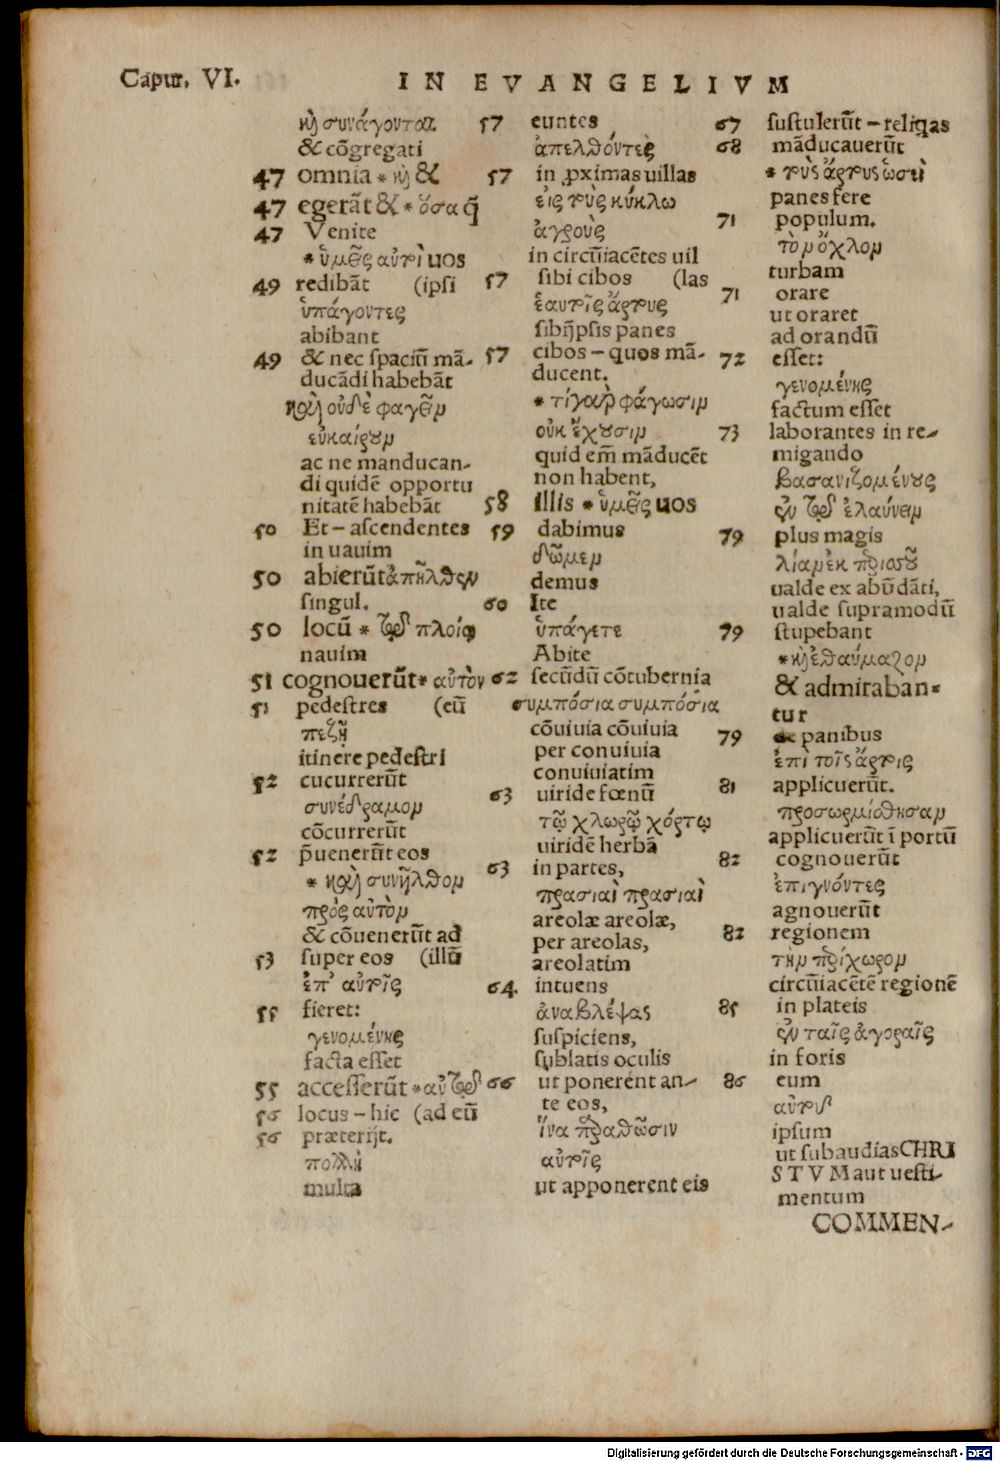 Caput. VI.
IN EVANGELIVM
καὶ συνάγονται
& cõgregati
47 omnia * καὶ &
47 egerãt & * ὅσα q̃
47 Venite
* ὑμεῖς αὐτοὶ uos
49 redibãt (ipsi
ὑπάγοντες
abibant
49 & nec spaciũ mã-
ducãdi habebãt
καὶ οὐδὲ φαγεῖν
εὐκαίρουν
ac ne manducan-
di quidẽ opportu
nitatẽ habebãt
50 Et – ascendentes
in nauim
50 abierũt ἀπῆλθεν
singul.
50 locũ * τῷ πλοίῳ
nauim
51 cognouerũt * αὐτὸν
51 pedestres (eũ
πεζῇ
itinere pedestri
52 cucurrerũt
συνέδραμον
cõcurrerũt
52 p̃uenerũt eos
* καὶ συνῆλθον
πρὸς αὐτὸν
& cõuenerũt ad
53 super eos (illũ
ἐπ' αὐτοῖς
55 fieret:
γενομένης
facta esset
55 accesserũt * αὐτῷ
56 locus – hic (ad eũ
56 præterijt.
πολλὴ
multa
57 euntes
ἀπελθόντες
57 in ꝓximas uillas
εἰς τοὺς κύκλῳ
ἀγροὺς
in circũiacẽtes uil
57 sibi cibos (las
ἑαυτοῖς ἄρτους
sibijpsis panes
57 cibos – quos mã-
ducent.
* τί γαρ φάγωσιν
οὐκ ἔχουσιν
quid em̃ mãducẽt
non habent,
58 illis * ὑμεῖς uos
59 dabimus
δῶμεν
demus
60 Ite
ὑπάγετε
Abite
62 secũdũ cõtubernia
συμπόσια συμπόσια
cõuiuia cõuiuia
per conuiuia
conuiuiatim
63 uiride fœnũ
τῷ χλωρῷ χόρτῳ
uiridẽ herbã
63 in partes,
πρασιαὶ πρασιαὶ
areolæ areolæ,
per areolas,
areolatim
64. intuens
ἀναβλέψας
suspiciens,
sublatis oculis
66 ut ponerent an-
te eos,
ἵνα παραθῶσιν
αὐτοῖς
ut apponerent eis
67 sustulerũt – reliqas
68 mãducauerũt
* τοὺς ἄρτους ὡσεὶ
panes fere
71 populum.
τὸν ὄχλον
turbam
71 orare
ut oraret
ad orandũ
72 esset:
γενομένης
factum esset
73 laborantes in re-
migando
βασανιζομένους
ἐν τῷ ἐλαύνειν
79 plus magis
λίαν ἐκ περισσοῦ
ualde ex abũdãti,
ualde supramodũ
79 stupebant
* καὶ ἐθαύμαζον
& admiraban-
tur
79 de panibus
ἐπὶ τοῖς ἄρτοις
81 applicuerũt.
προσωρμίσθησαν
applicuerũt ĩ portũ
82 cognouerũt
ἐπιγνόντες
agnouerũt
82 regionem
τὴν περίχωρον
circũiacẽtẽ regionẽ
85 in plateis
ἐν ταῖς ἀγοραῖς
in foris
86 eum
αὐτοῦ
ipsum
ut subaudias CHRI
STVM aut uesti-
mentum
COMMEN-
Digitalisierung gefördert durch die Deutsche Forschungsgemeinschaft - DFG